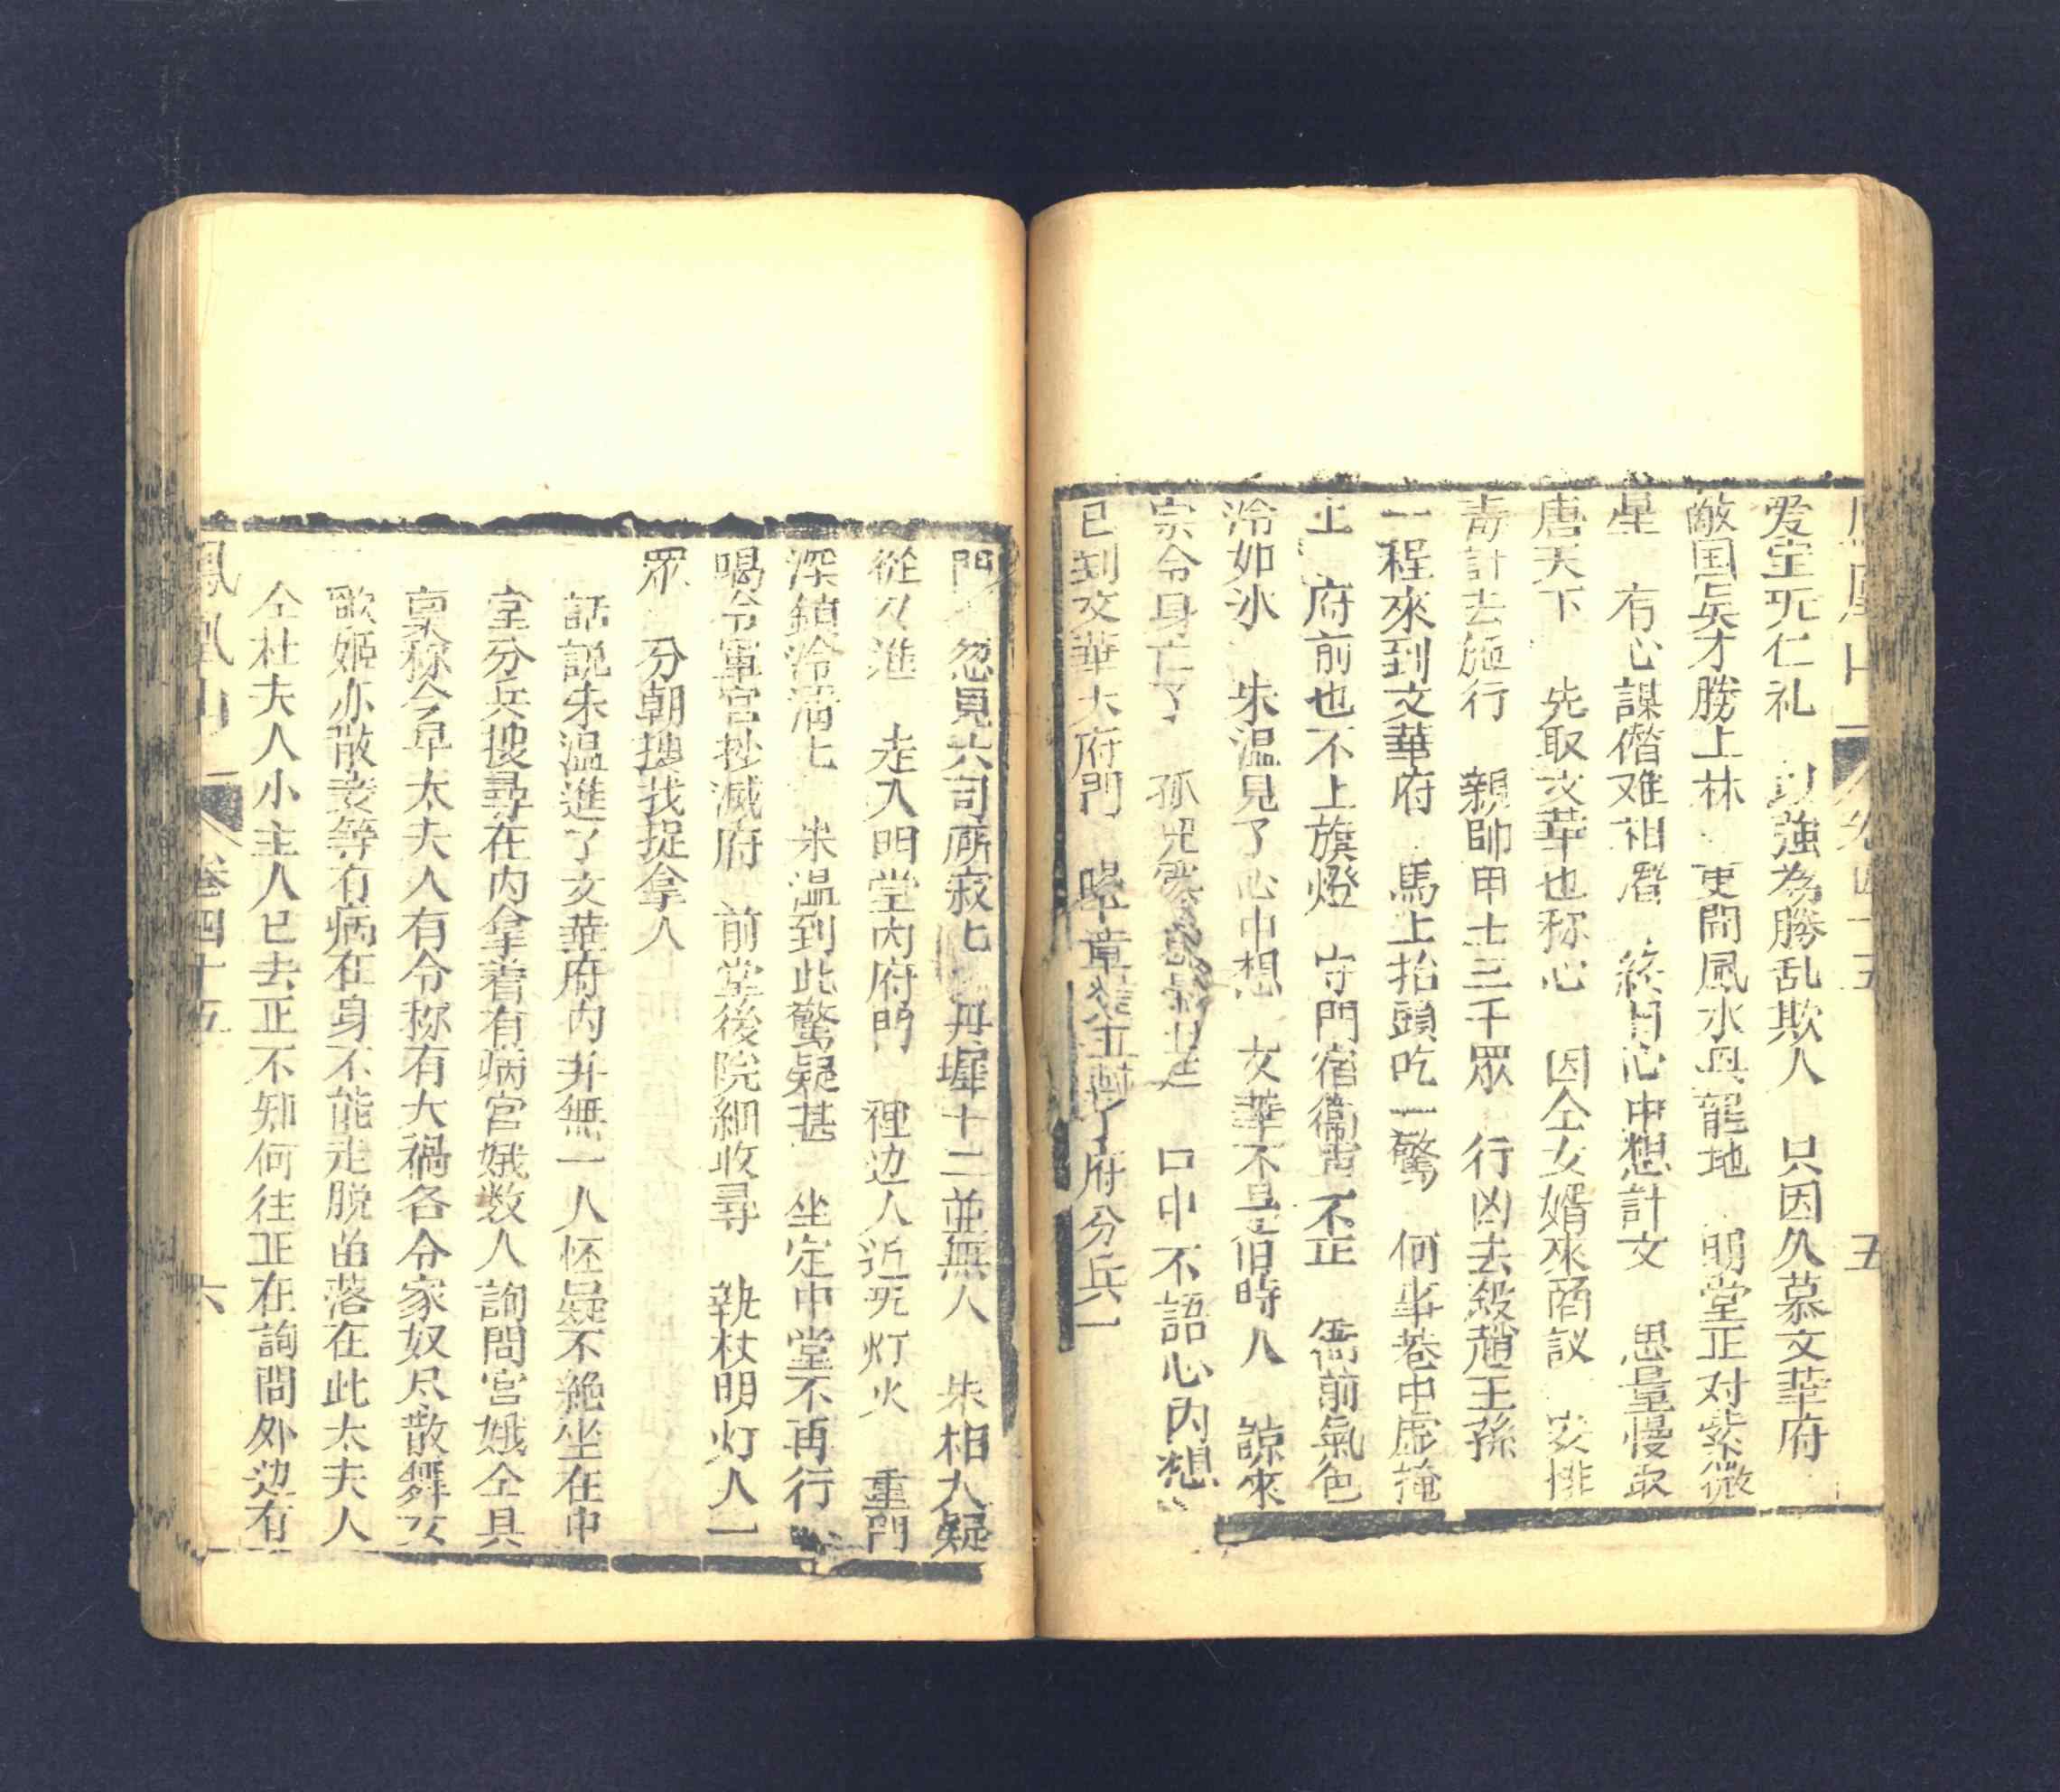 鳳凰山 卷四十五 五
爱室死仁礼 以強為勝乱欺人 只因久慕文華府
敵国吴才勝上林 更間風水與龍地 明堂正对紫微
星 有心謀偺难相 終日心中想計文 思量慢取
唐天下 先取文華也称心 因仝女婿來商议 安排
毒計去施行 親帥甲士三千眾 行凶去殺趙王孫
一程來到文華府 馬上抬頭吃一驚 何半巷中虛掩
上 府前也不上旗燈 守門宿衞皆不正 衙前氣色
冷如氷 朱温見了心中想 文華不是旧時人 諒來
宗令身亡了 孤 口中不語心內想
已到文華大府門 喝 了府分兵一
門 忽見六司厰寂匕 丹墀十二並無人 朱相大疑
從々進 走入明堂内府門 裡边人近死灯火 重門
深鎖冷清匕 朱温到此驚疑甚 坐定中堂不再行
喝令軍官抄滅府 前堂後院細收尋 執杖明灯人一
眾 分朝搜找捉拿人
話説朱温進了文華府内并無一人怀疑不絶坐在中
堂分兵搜尋在内拿着有病宮娥数人詢問宮娥仝具
稟称今早太夫人有令称有大禍各令家奴尽散舞女
歌姬亦散妾等有病在身不能走脱畄落在此太夫人
仝杜夫人小主人已去正不知何往正在詢問外边有
鳳凰山 卷四十五 六